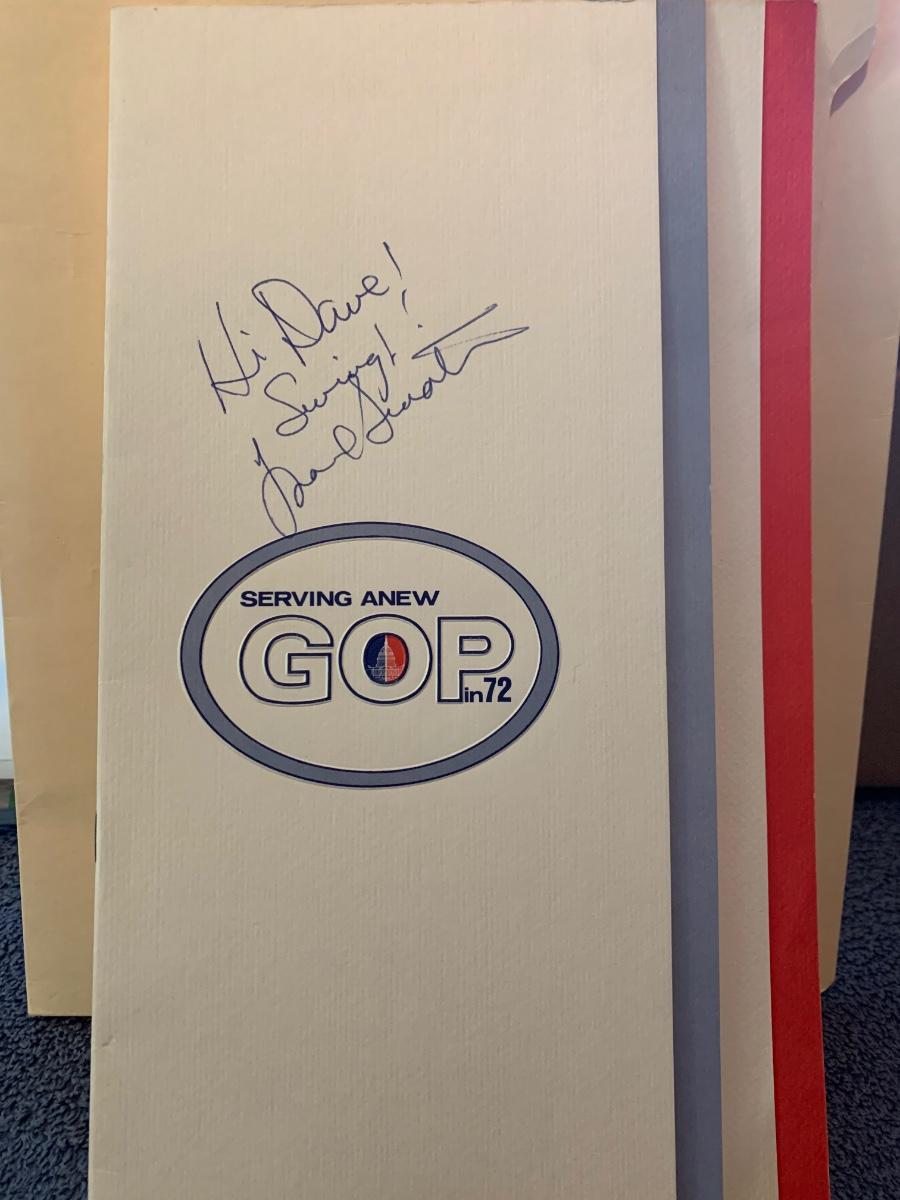 Hi Dave!
Swing!
Frank Sinatra
SERVING ANEW
GOP
in 72